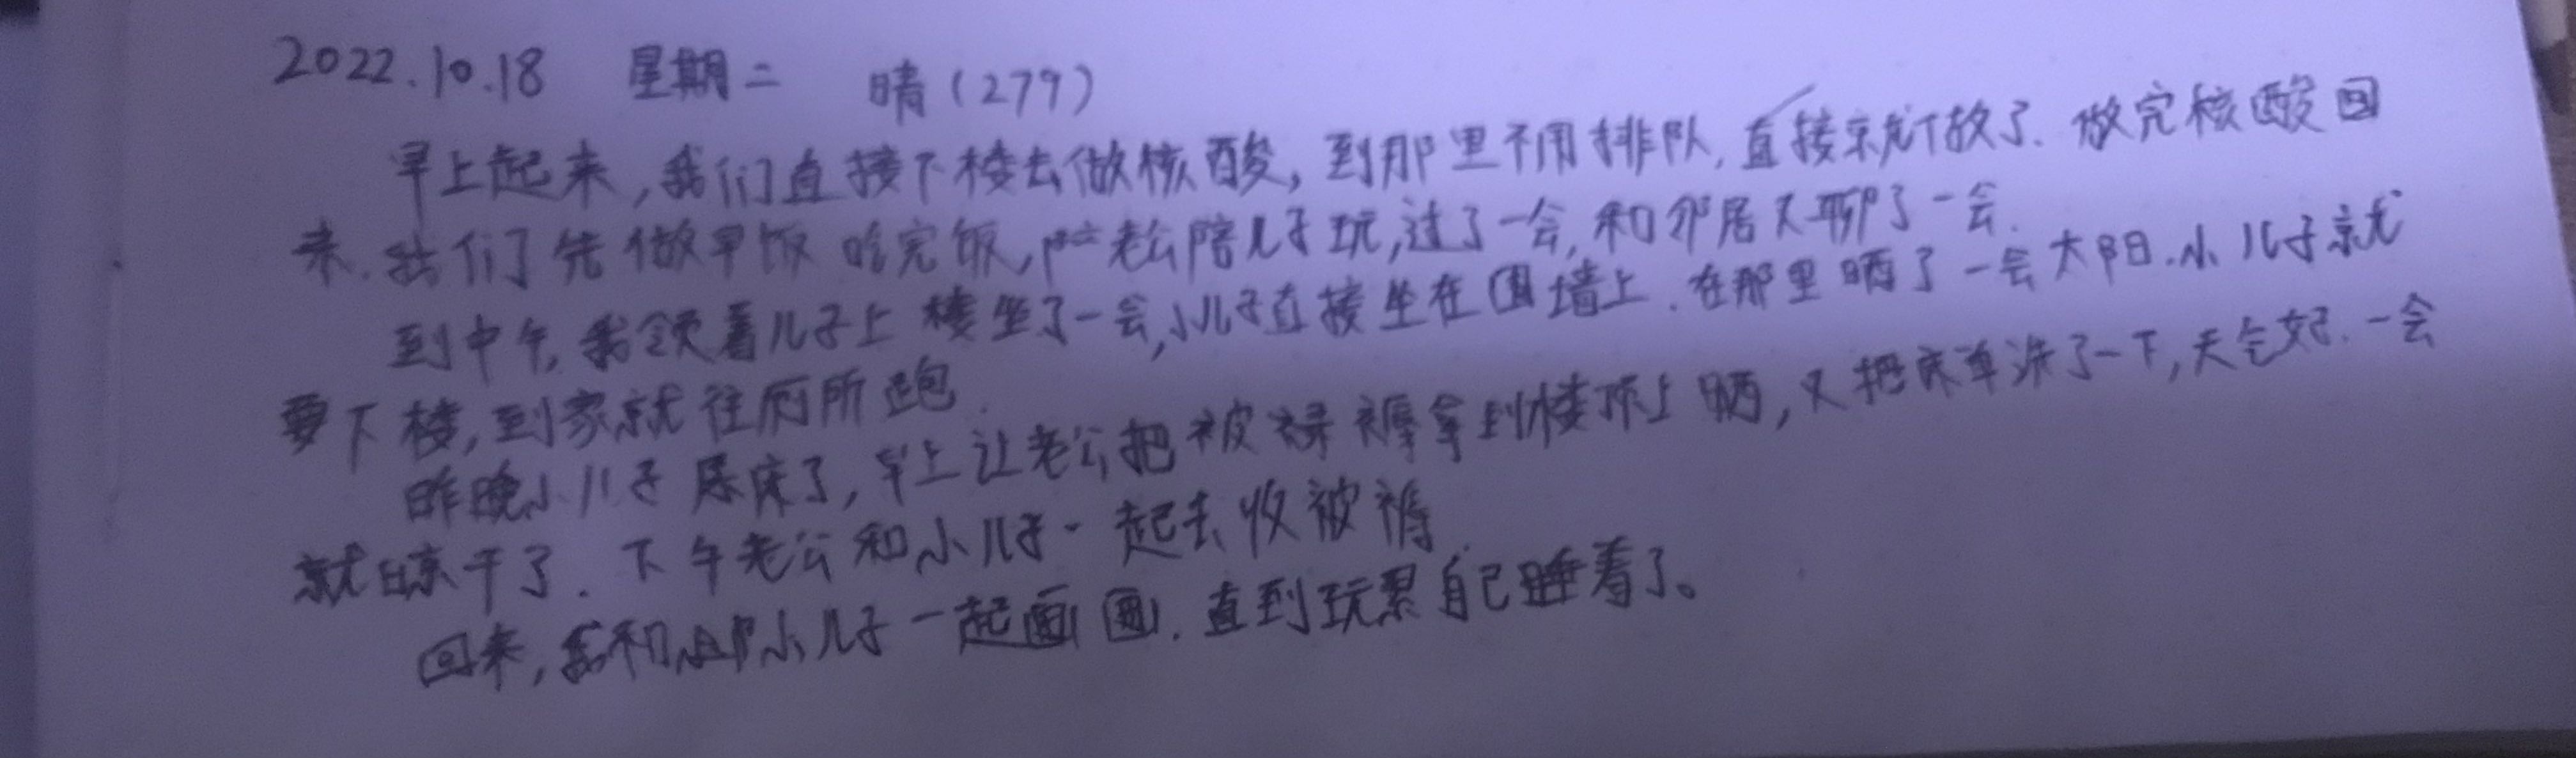 2022.10.18 星期二 晴（279）
早上起来,我们直接下楼去做核酸,到那里不用排队,直接就做了.做完核酸回
来.我们先做早饭 吃完饭,老公陪儿子玩,过了一会,和邻居又聊了一会.
到中午,我领着儿子上楼坐了一会,小儿子直接坐在围墙上.在那里晒了一会太阳.小儿子就
要下楼,到家就往厕所跑.
昨晚小儿子尿床了,早上让老公把被褥拿到楼顶上晒,又把床单洗了一下,天气好.一会
就晾干了.下午老公和小儿子一起去收被褥.
回来,我和小儿子一起画画.直到玩累自己睡着了。